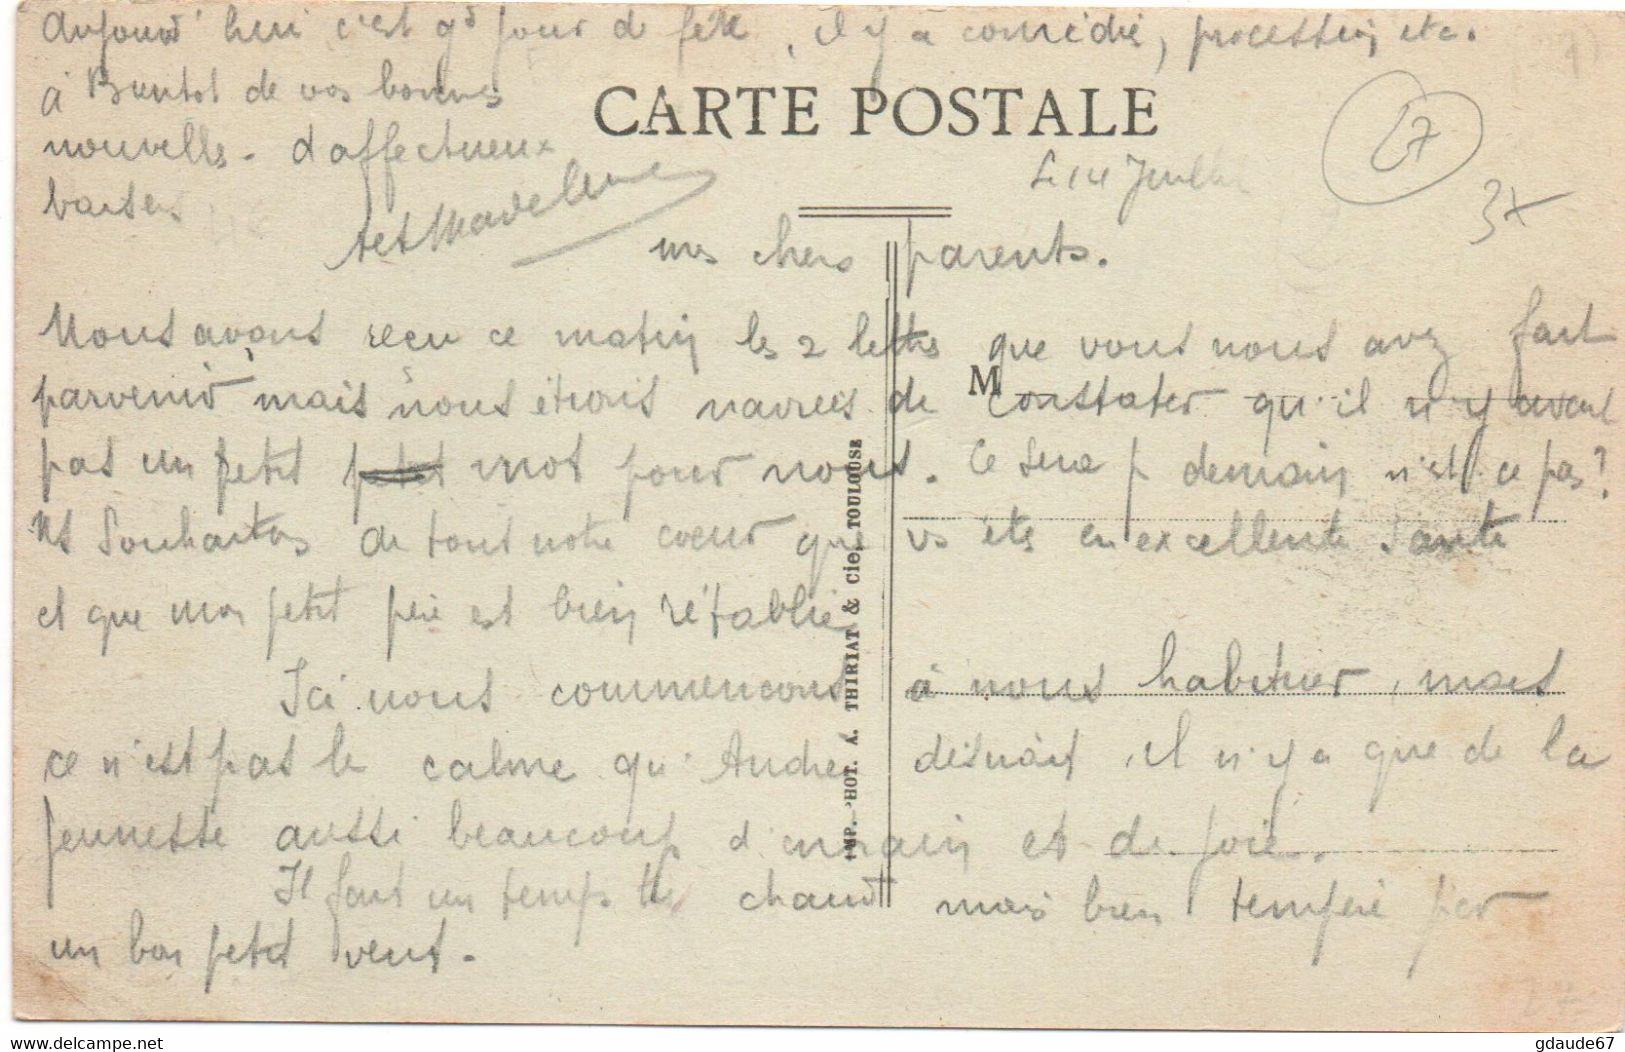 Aujourd'hui c'est gd jour de fête, il y a comédie, procession, etc.
à Bientôt de vos bonnes
nouvelles - d'affectueux
baisers
Madeleine
CARTE POSTALE
Le 14 Juillet
7
mes chers parents.
Nous avons reçu ce matin les 2 lettres que vous nous avez fait
parvenir mais nous étions navrées de constater qu'il n'y avait
M
pas un petit mot pour nous. Ce sera p demain n'est-ce pas?
Ns souhaitons de tout notre coeur que vs êtes en excellente santé
et que mon petit père est bien rétabli
Ici nous commencons à nous habituer, mais
ce n'est pas le calme qu'André désirait, il n'y a que de la
jeunesse aussi beaucoup d'entrain et de joie.
Il fait un temps très chaud mais bien tempéré par
un bon petit vent.
IMP. PHOT. A. THIRIAT & Cie, TOULOUSE
https://www.delcampe.net
gdaude67